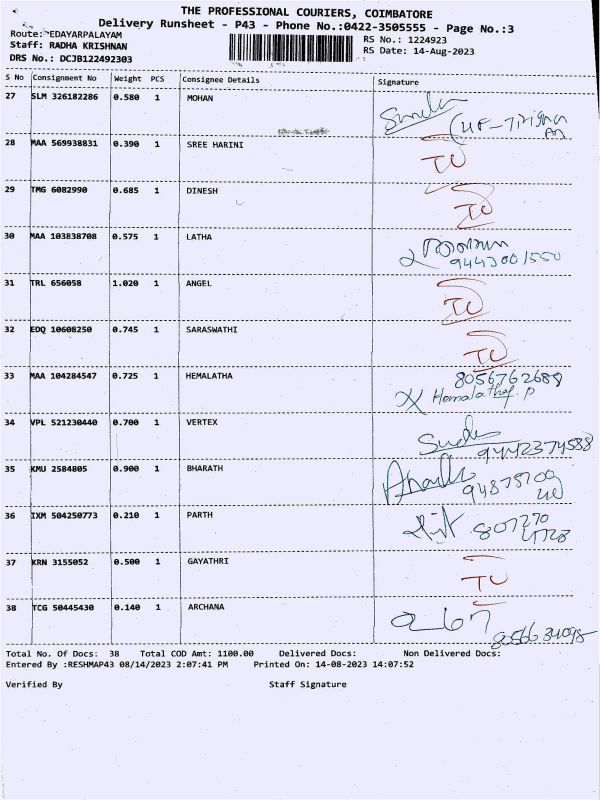 THE PROFESSIONAL COURIERS, COIMBATORE
Delivery Runsheet - P43 - Phone No.:0422-3505555 - Page No.:3
Route: EDAYARPALAYAM
Staff: RADHA KRISHNAN
DRS No.: DCJB122492303
RS No.: 1224923
RS Date: 14-Aug-2023
S No Consignment No Weight PCS Consignee Details Signature
27 SLM 326182286 0.580 1 MOHAN
28 MAA 569938831 0.390 1 SREE HARINI
29 TMG 6082990 0.685 1 DINESH
30 MAA 103838708 0.575 1 LATHA
9443001550
31 TRL 656058 1.020 1 ANGEL
32 EDQ 10608250 0.745 1 SARASWATHI
33 MAA 104284547 0.725 1 HEMALATHA
8056762689
Hemalatha P
34 VPL 521230440 0.700 1 VERTEX
9442374588
35 KMU 2584805 0.900 1 BHARATH
36 IXM 504250773 0.210 1 PARTH
37 KRN 3155052 0.500 1 GAYATHRI
38 TCG 50445430 0.140 1 ARCHANA
Total No. Of Docs: 38 Total COD Amt: 1100.00 Delivered Docs: Non Delivered Docs:
Entered By :RESHMAP43 08/14/2023 2:07:41 PM Printed On: 14-08-2023 14:07:52
Verified By Staff Signature